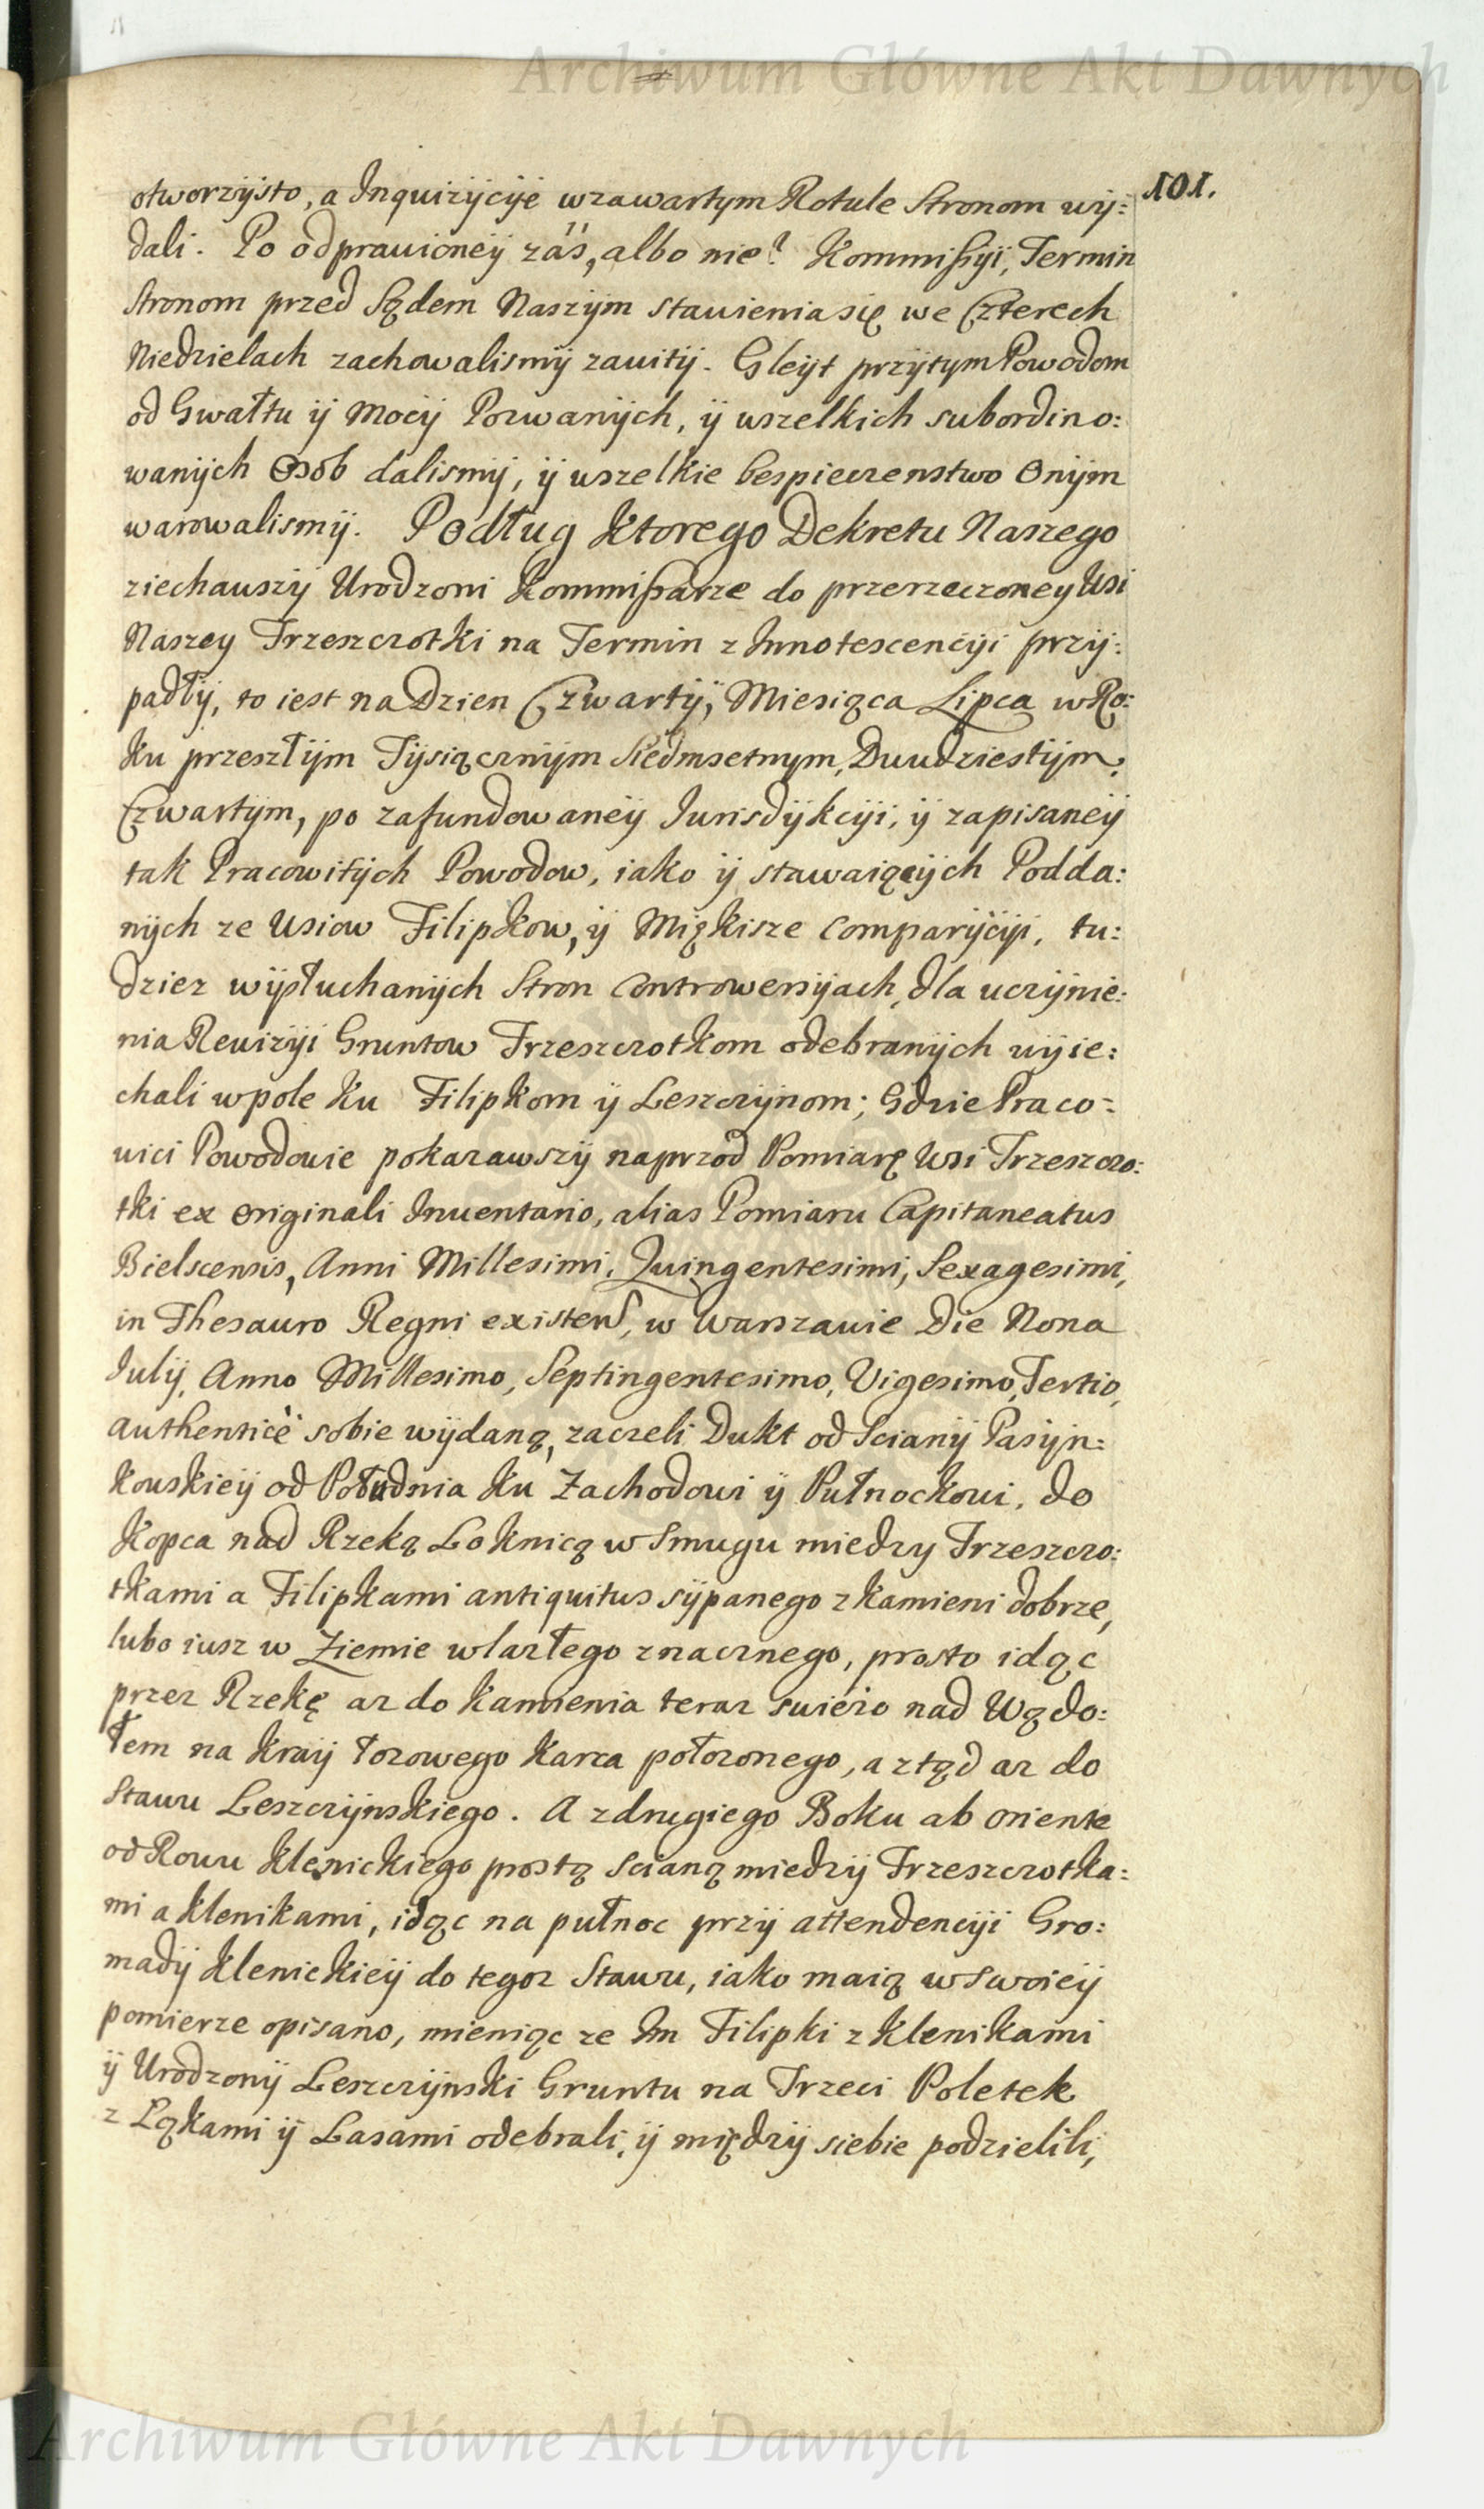 Archiwum Główne Akt Dawnych
101.
otworzÿsto, a Inquizÿcÿe wzawartym Rotule Stronom wÿ:
dali. Po odprawioneÿ záś, albo nie? Kommißÿi, Termin
Stronom przed Sądem Naszÿm stawienia się we Czterech
Niedzielach zachowalismÿ zawitÿ. Gleÿt przÿtym Powodom
od Gwałtu ÿ Mocÿ Pozwanÿch, ÿ wszelkich subordino:
wanÿch Osob dalismÿ, ÿ wszelkie bespieczenstwo Onÿm
warowalismÿ. Podług Ktorego Dekretu Naszego
ziechawszÿ Urodzoni Kommißarze do przerzeczoney Wsi
Naszey Trzeszczotki na Termin z Innotescencÿi przÿ:
padłÿ, to iest na Dzien Czwartÿ, Miesiąca Lipca w Ro:
ku przeszłÿm Tÿsiącznÿm Siedmsetnym, Dwudziestÿm,
Czwartÿm, po zafundowaneÿ Jurisdÿkcÿi, ÿ zapisaneÿ
tak Pracowitÿch Powodow, iako ÿ stawaiącÿch Podda:
nÿch ze Wsiow Filipkow, ÿ Miąkisze Comparÿcÿi, tu:
dziez wÿsłuchanÿch Stron Controwersÿach, dla uczÿnie:
nia Rewizÿi Gruntow Trzeszczotkom odebranÿch wÿie:
chali w pole Ku Filipkom ÿ Leszczÿnom; Gdzie Praco=
wici Powodowie pokazawszÿ naprzod Pomiarę Wsi Trzeszczo:
tki ex Originali Inventario, alias Pomiaru Capitaneatus
Bielscensis, Anni Millesimi, Quingentesimi, Sexagesimi,
in Thesauro Regni existens, w Warszawie Die Nona
Julÿ, Anno Millesimo, Septingentesimo, Vigesimo, Tertio,
authenticè sobie wÿdaną, zaczeli Dukt od Scianÿ Pasÿn:
kowskieÿ od Południa Ku Zachodowi ÿ Pułnockowi, do
Kopca nad Rzeką Loknicą w Smugu miedzy Trzeszczo:
tkami a Filipkami antiquitus sÿpanego z Kamieni dobrze,
lubo iusz w Ziemie wlazłego znacznego, prosto idąc
przez Rzekę az do Kamienia teraz swieżo nad Wądo:
łem na Kraÿ łozowego Karca połozonego, a ztąd az do
Stawu Leszczÿnskiego. A z drugiego Boku ab Oriente
od Rowu Klenickiego prostą Scianą miedzÿ Trzeszczotka:
mi a Klenikami, idąc na pułnoc przÿ attendencÿi Gro:
madÿ Klenickieÿ do tegoz Stawu, iako maią w Swoieÿ
pomierze opisano, mieniąc ze Im Filipki z Klenikami
ÿ Urodzonÿ Leszczÿnski Gruntu na Trzeci Poletek
z Ląkami ÿ Lasami odebrali, ÿ międzÿ siebie podzielili,
Archiwum Główne Akt Dawnych